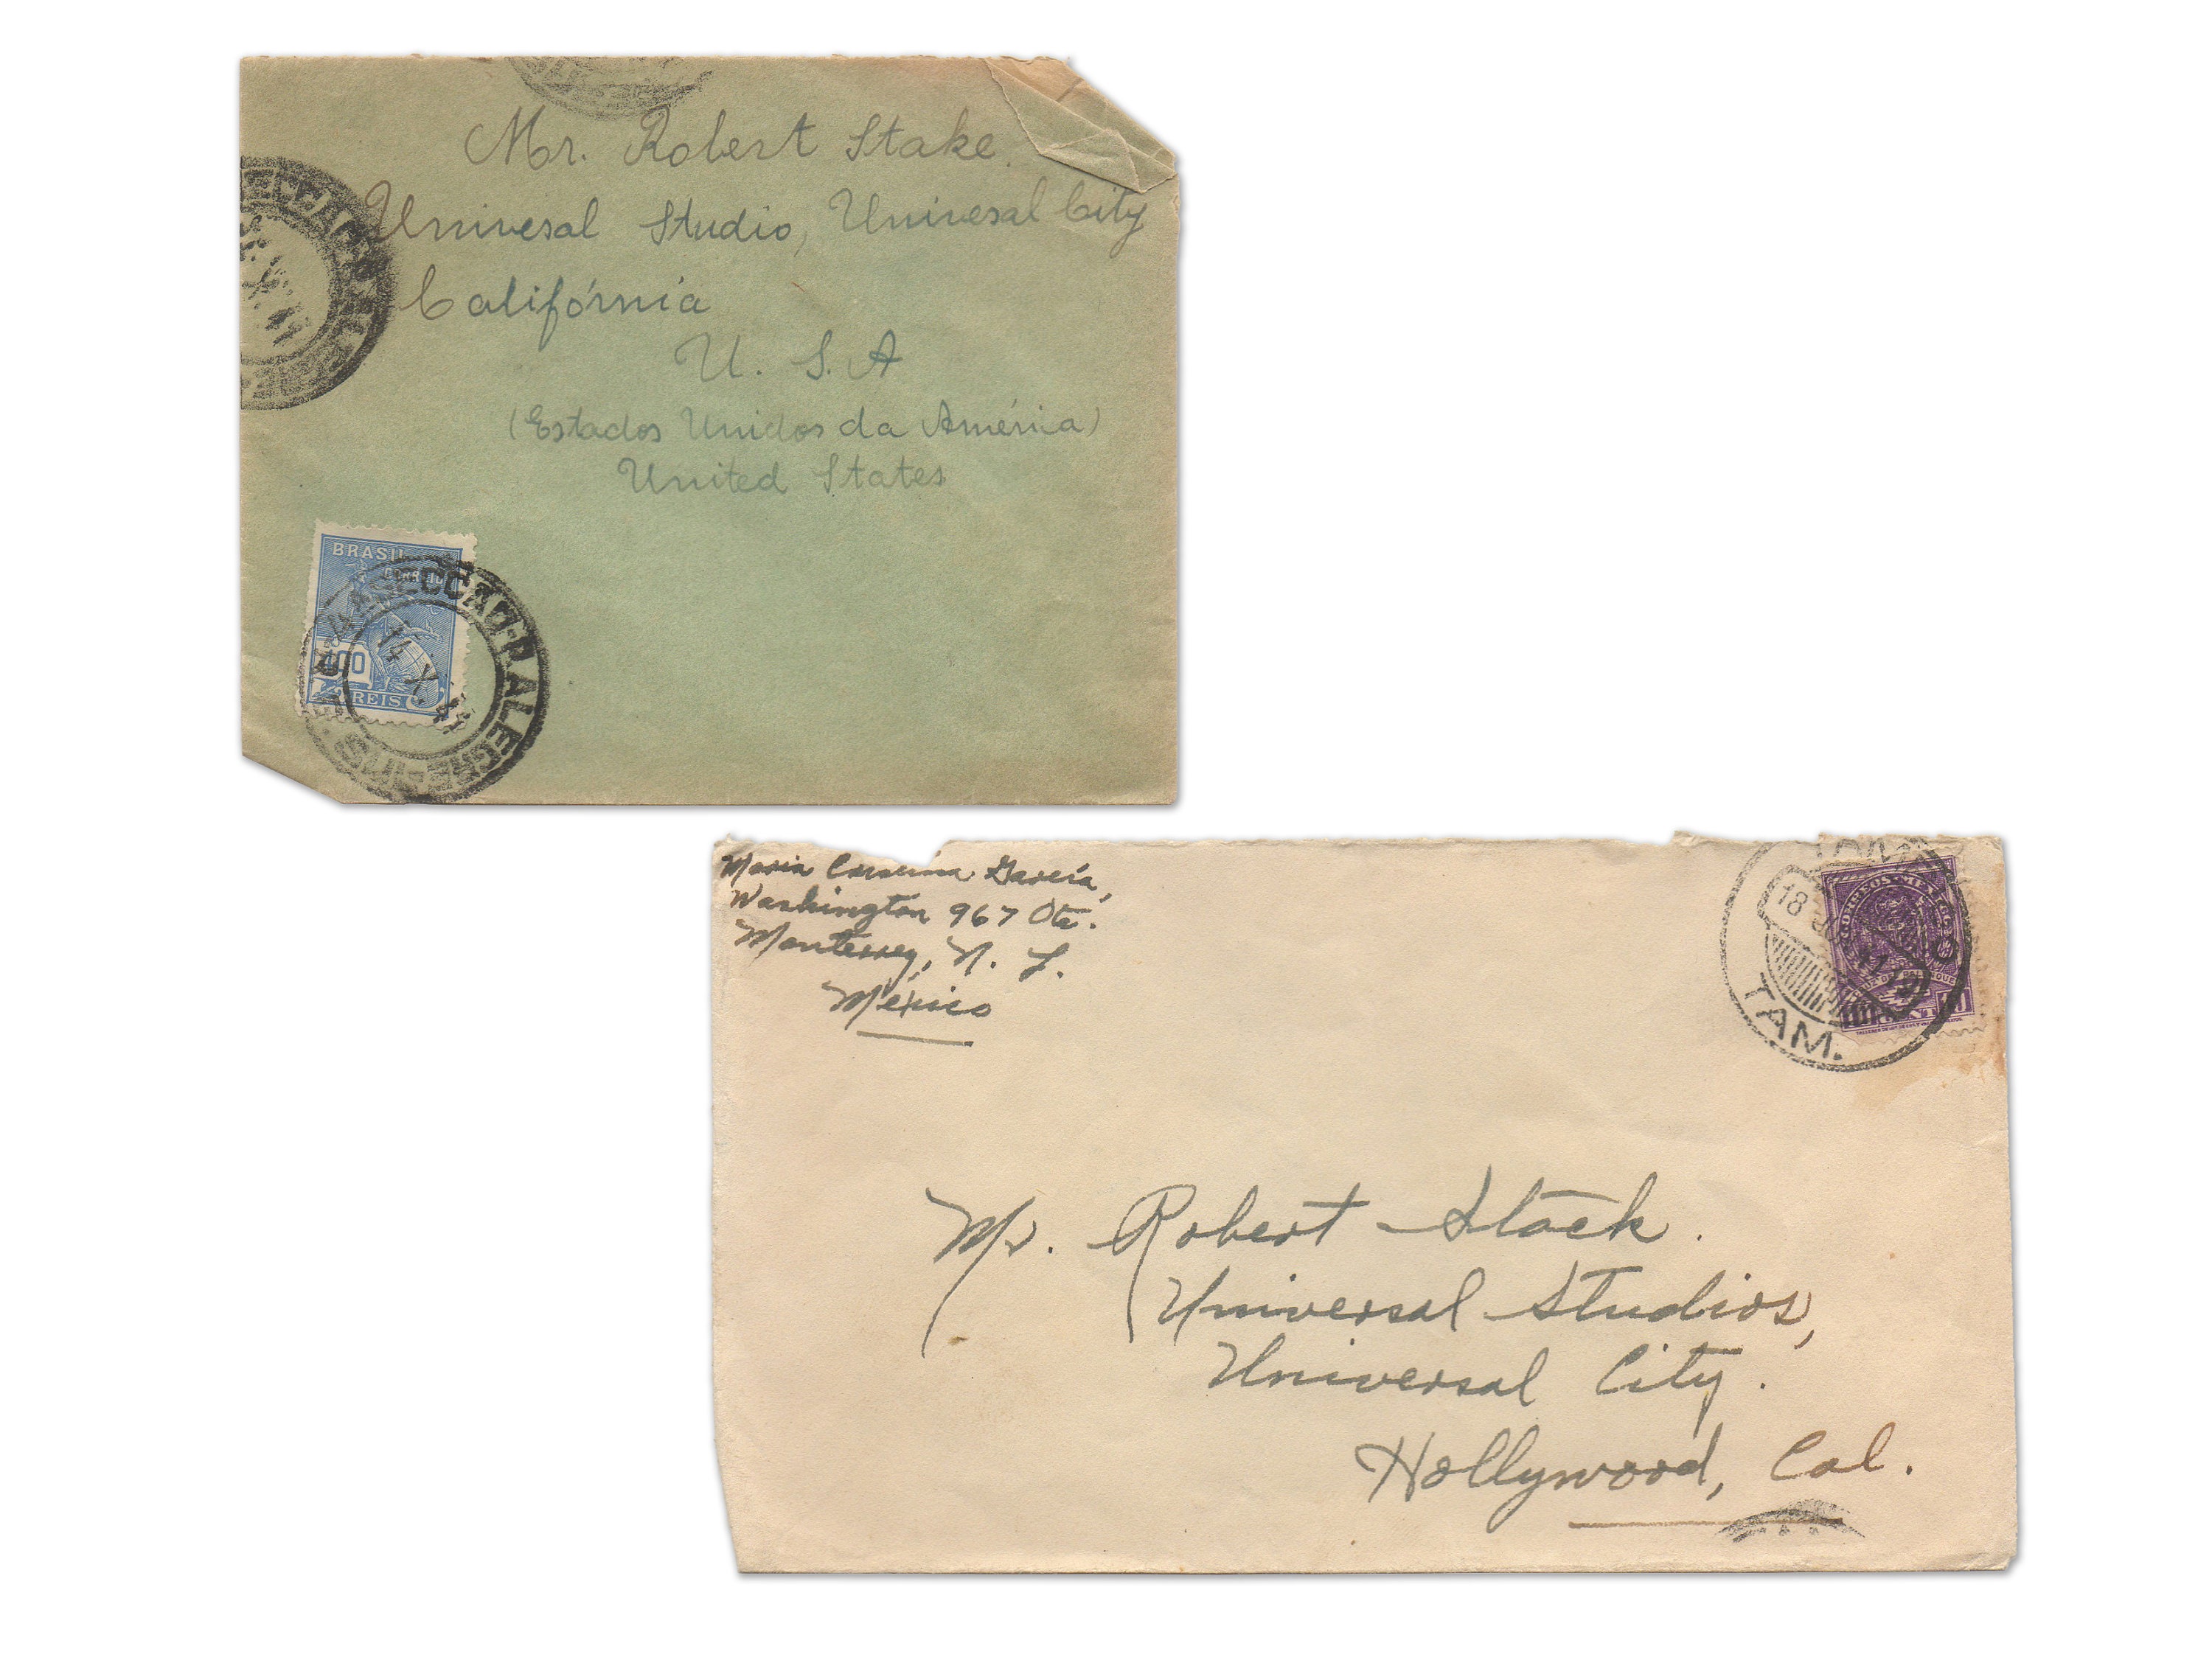 Mr. Robert Stake.
Univesal Studio, Univesal City
Califórnia
U. S. A
(Estados Unidos da América)
United States
BRASIL
CORREIO
400
REIS
4A SECCAO-P. ALEGRE
14 X 41
Maria García,
Washington 967 Ote.
Monterrey, N. L.
México
CORREOS MEXICO
18 41
TAM.
Mr. Robert Stack.
Universal Studios,
Universal City.
Hollywood, Cal.